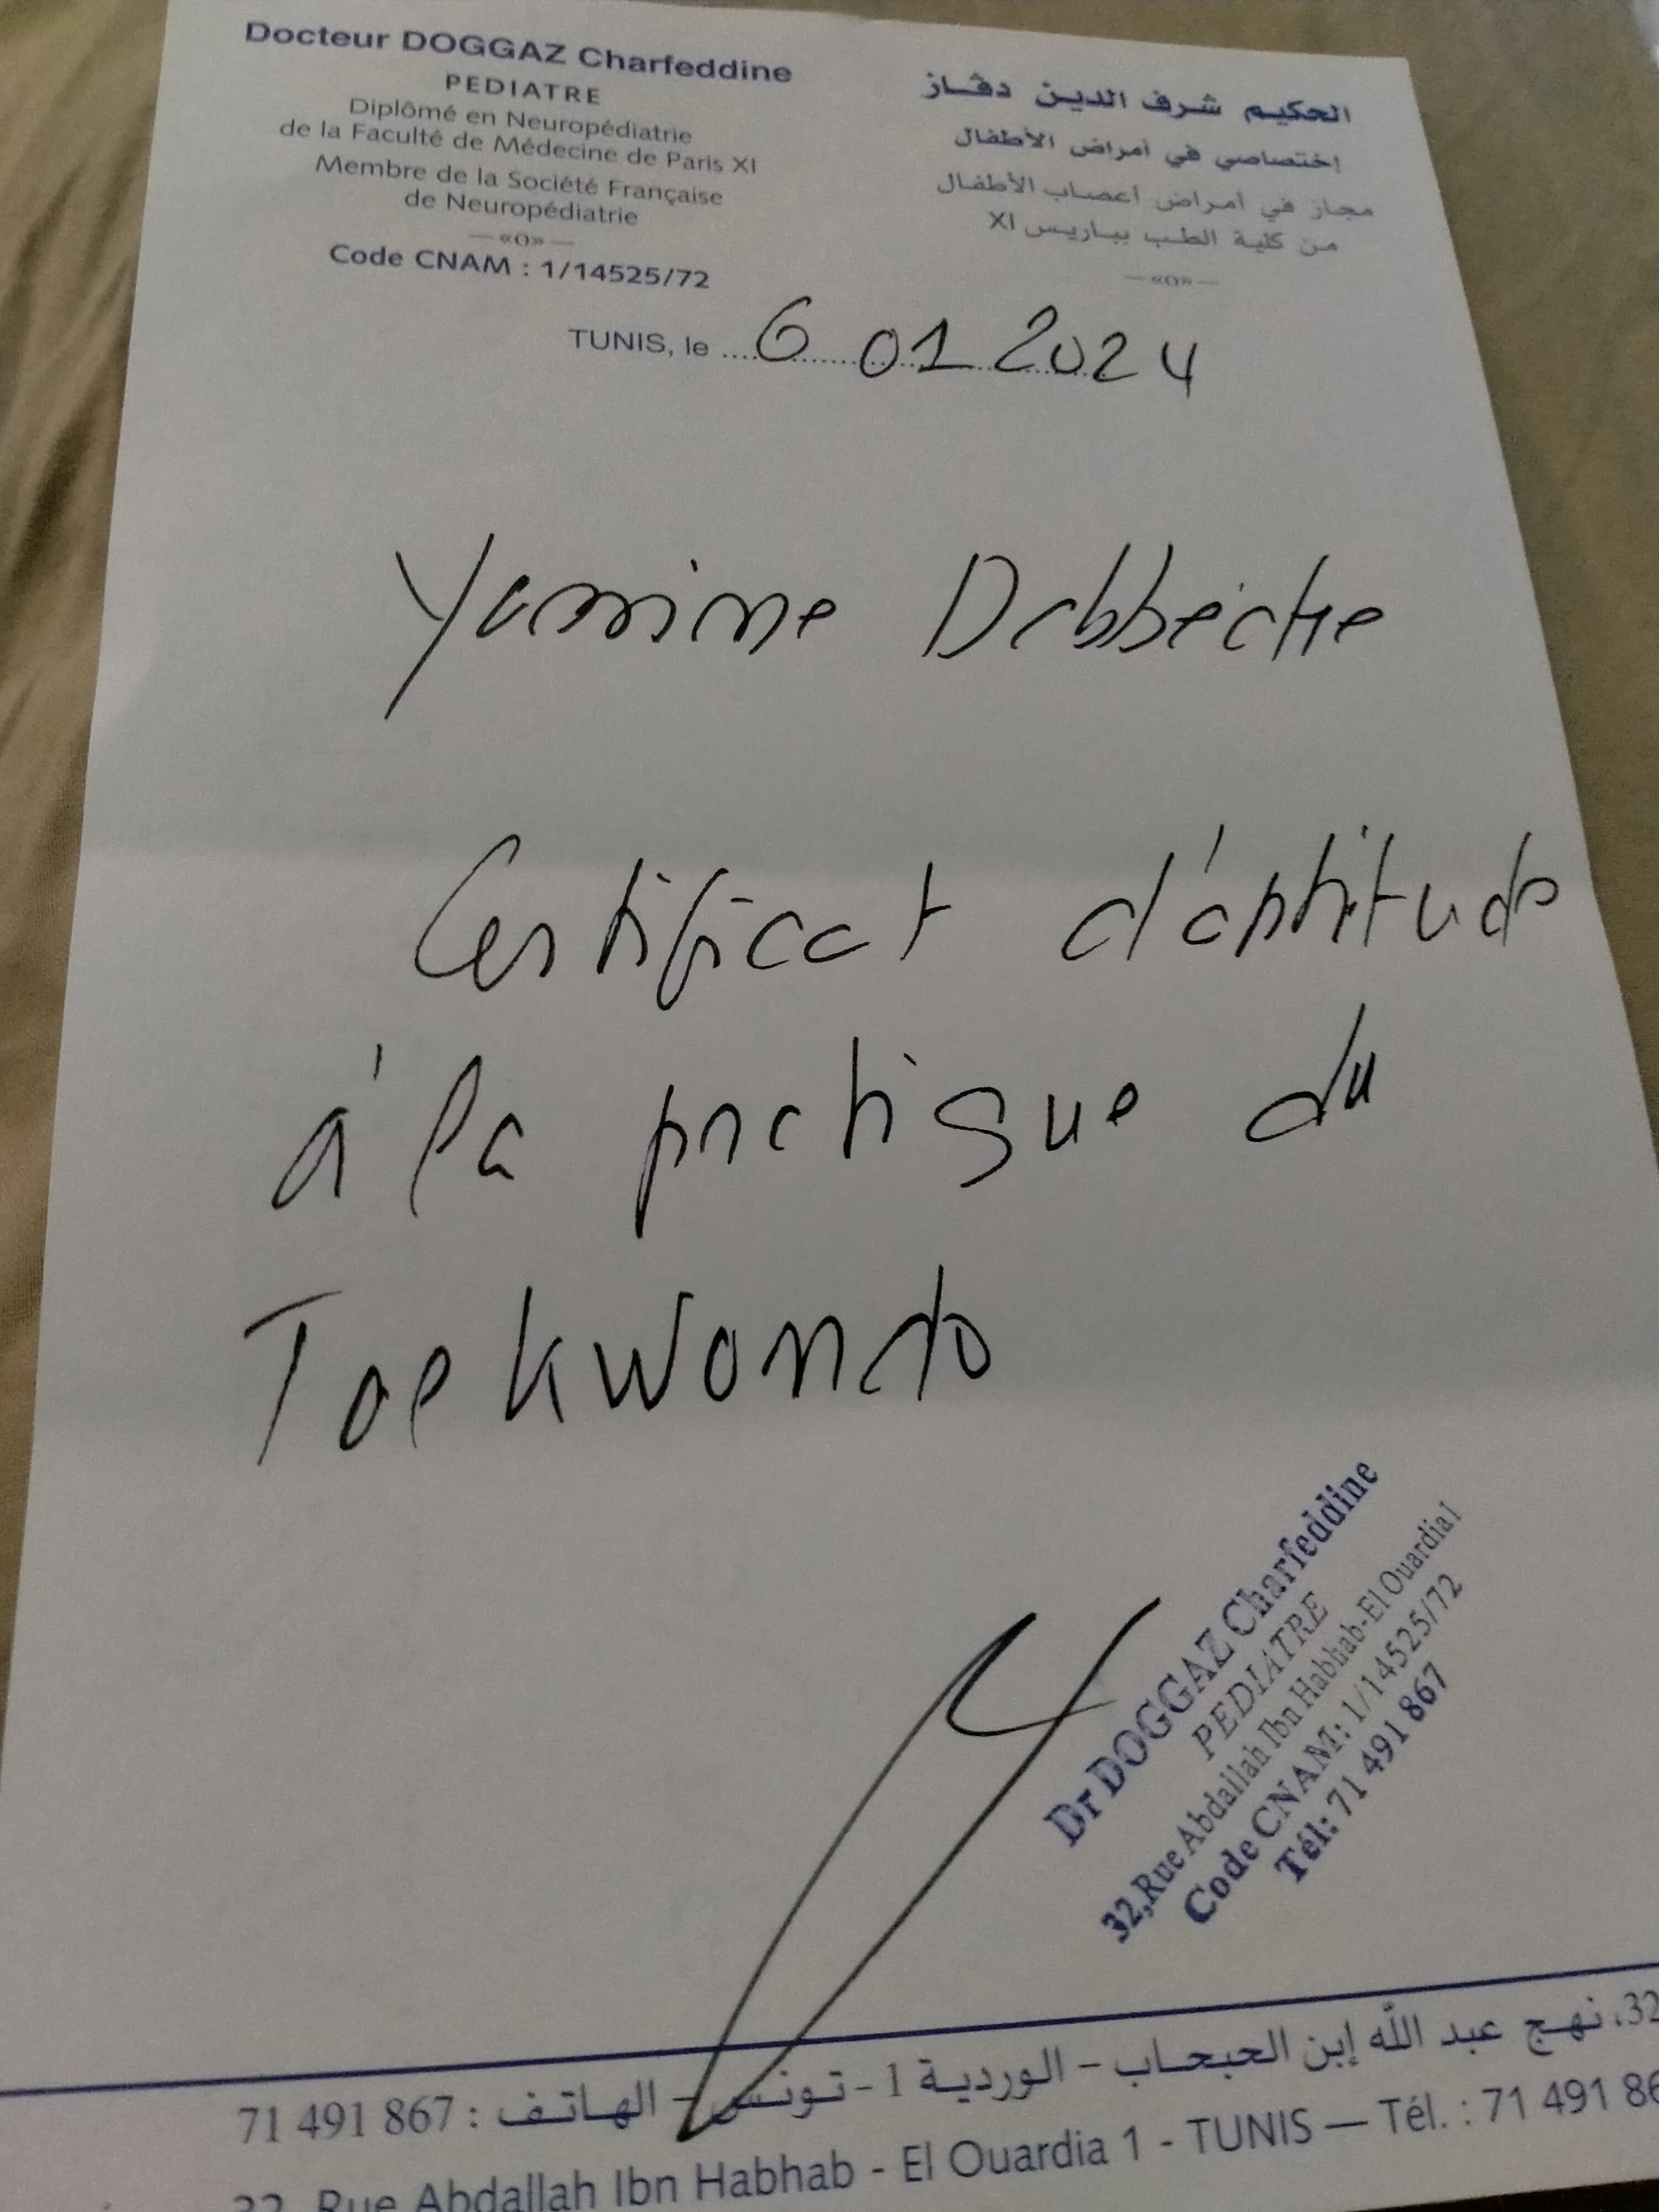 Docteur DOGGAZ Charfeddine
PEDIATRE
Diplômé en Neuropédiatrie
de la Faculté de Médecine de Paris XI
Membre de la Société Française
de Neuropédiatrie
—«O»—
Code CNAM : 1/14525/72
الحكيم شرف الدين دڨاز
إختصاصي في أمراض الأطفال
مجاز في أمراض أعصاب الأطفال
من كلية الطب بباريس XI
—«O»—
TUNIS, le 6 01 2024
Yassine Debbeche
Certificat d'aptitude
à la pratique du
Taekwondo
Dr DOGGAZ Charfeddine
PEDIATRE
32,Rue Abdallah Ibn Habhab-El Ouardia1
Code CNAM: 1/14525/72
Tél: 71 491 867
32، نهج عبد الله إبن الحبحاب – الوردية 1 - تونس – الهاتف : 71 491 867
32, Rue Abdallah Ibn Habhab - El Ouardia 1 - TUNIS — Tél. : 71 491 86